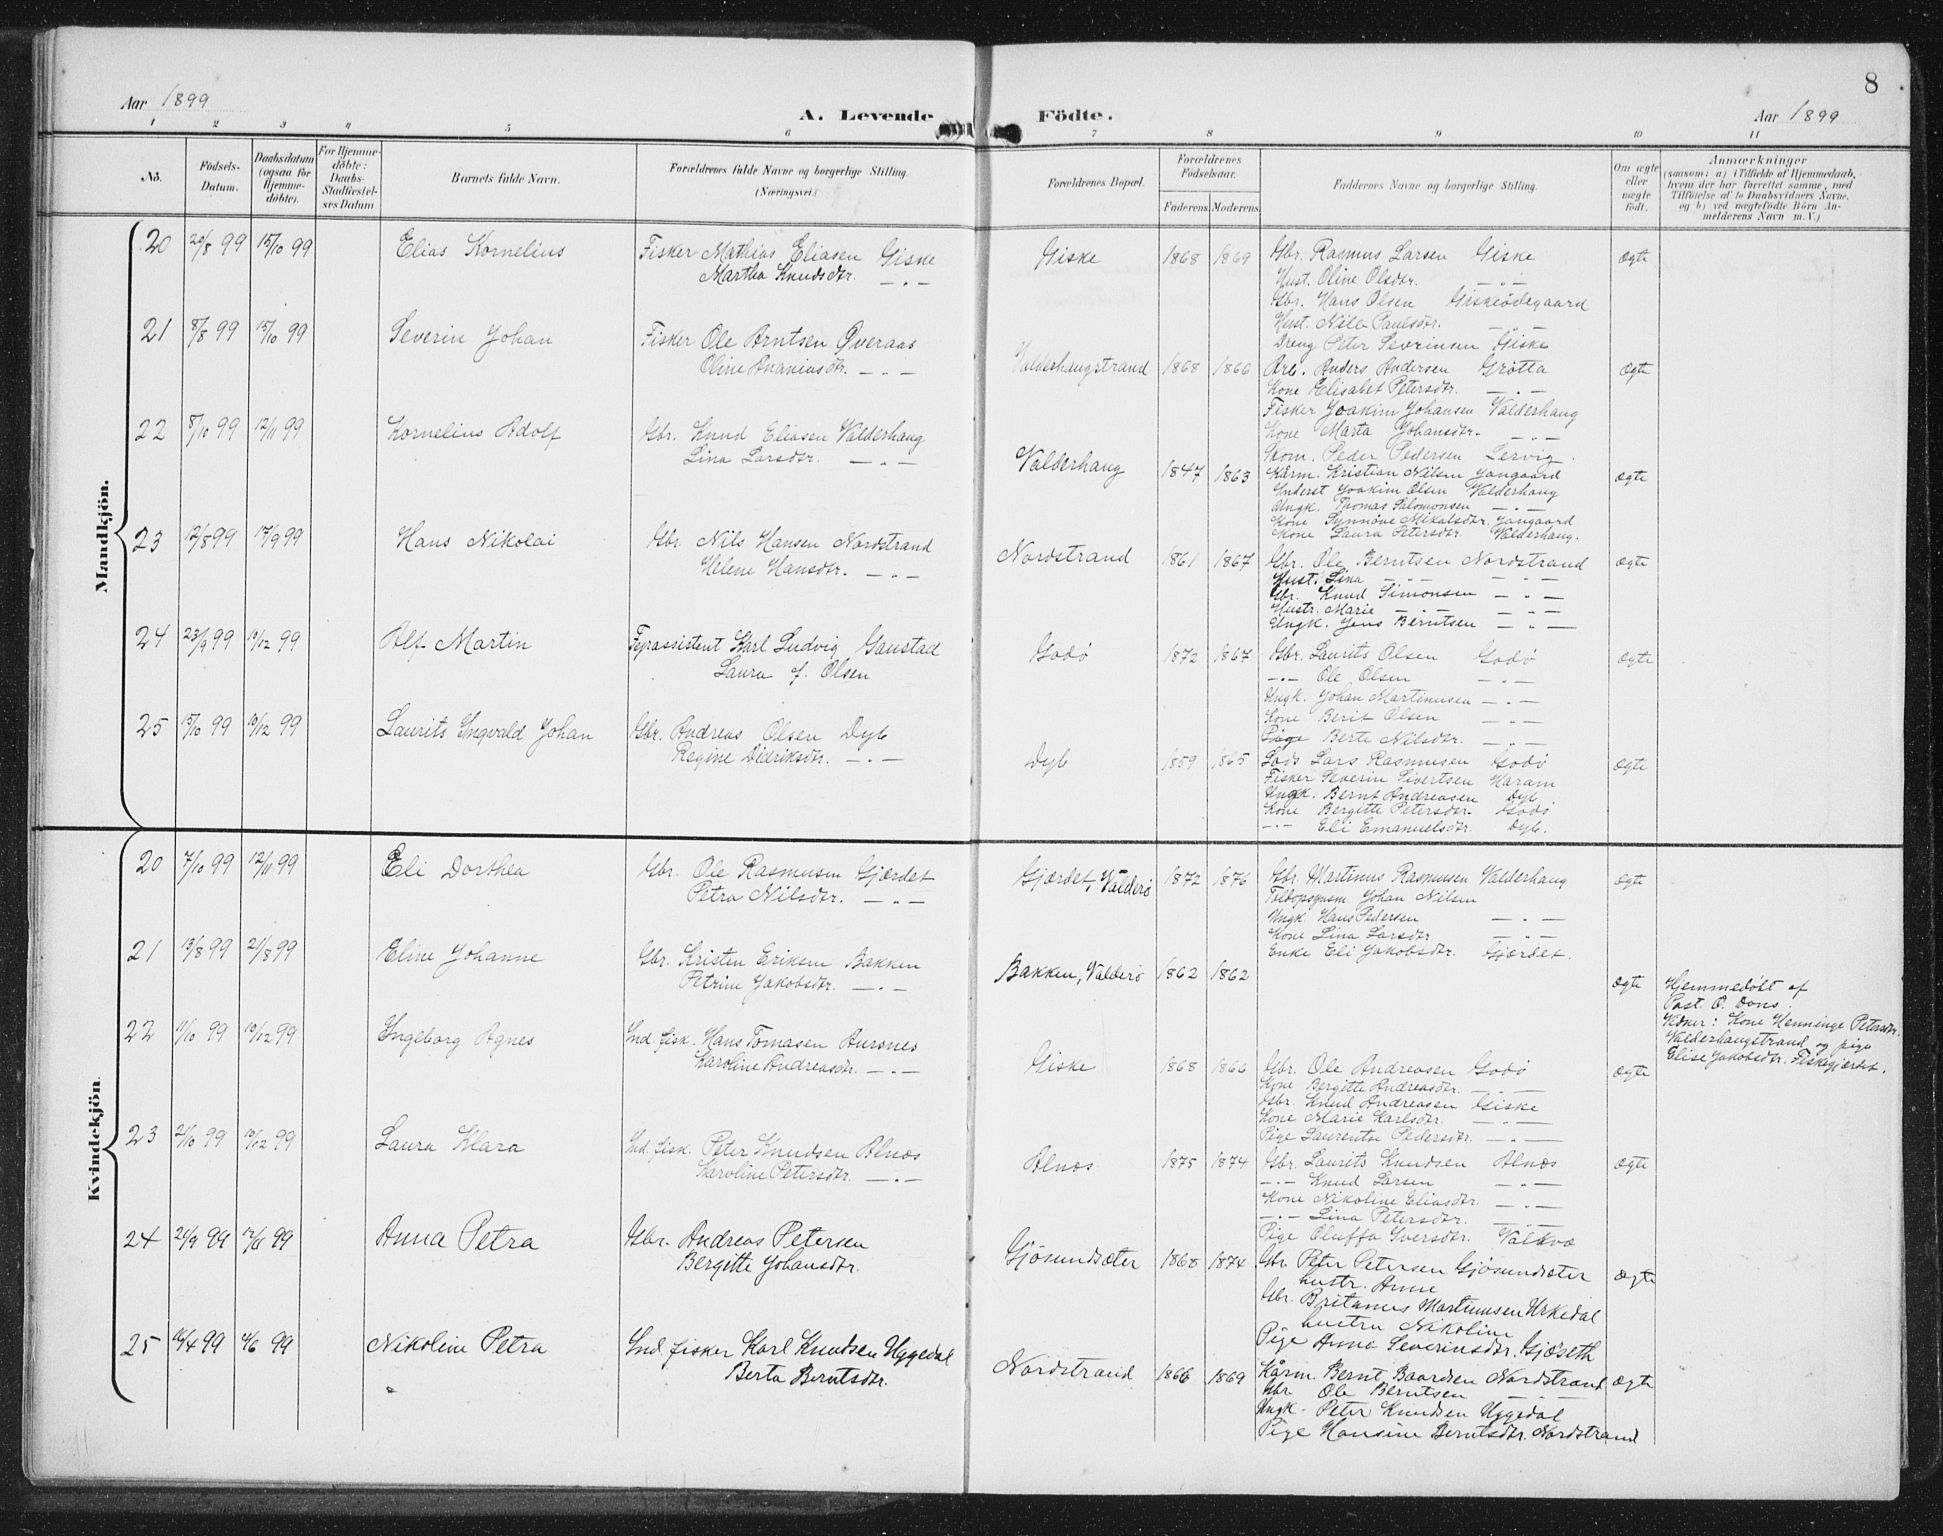 8
Aar 1899
A. Levende Födte.
Aar 1899
1 2 3 4 5 6 7 8 9 10 11
No.
Födsels-Datum.
Daabsdatum (ogsaa for Hjemme-döbte).
For Hjemme-döbte: Daabs-Stadfæstel-ses Datum.
Barnets fulde Navn.
Forældrenes fulde Navne og borgerlige Stilling. (Næringsvei.)
Forældrenes Bopæl.
Forældrenes Födselsaar.
Faderens. Moderens.
Faddernes Navne og borgerlige Stilling.
Om ægte eller uægte födt.
Anmærkninger
(saasom: a) i Tilfælde af Hjemmedaab, hvem der har forrettet samme, med Tilföielse af to Daabsvidners Navne, og b) ved uægtefödte Börn Anmelderens Navn m. V.)
Mandkjön.
20 20/8 99 15/10 99 Elias Kornelius Fisker Mathias Eliasen Giske
Martha Knudsdtr. — " —
Giske 1868 1869 Gbr. Rasmus Larsen Giske ægte
Hust. Oline Olsdtr. — " —
Gbr. Hans Olsen Giskeödegaard
Hust. Nille Paulsdtr. — " —
Dreng Peter Sevrinsen Giske
21 8/8 99 15/10 99 Severin Johan Fisker Ole Arntsen Överaas
Oline Ananiasdtr. — " —
Valderhaugstrand 1868 1866 Arb. Anders Andersen Grötta ægte
Kone Elisabet Petersdtr. — " —
Fisker Joakim Johansen Valderhaug
Kone Marta Johansdtr. — " —
Kom. Peder Pedersen Lervig.
22 8/10 99 12/11 99 Kornelius Adolf Gbr. Knud Eliasen Valderhaug
Lina Larsdtr. — " —
Valderhaug 1847 1863 Kårm. Kristian Nilsen Ytrgaard ægte
Inderst Joakim Olsen Valderhaug
Ungk. Thomas Salomonsen — " —
Kone Synnöve Mikalsdtr.
Kone Laura Petersdtr. Valderhaug.
23 12/8 99 17/9 99 Hans Nikolai Gbr. Nils Hansen Nordstrand
Helene Hansdtr. — " —
Nordstrand 1861 1867 Gbr. Ole Berntsen Nordstrand ægte
Hust. Lina — " — — " —
Gbr. Knud Simonsen — " —
Hustr. Marie — " — — " —
Ungk. Jens Berntsen — " —
24 23/9 99 10/12 99 Alf Martin Fyrassistent Karl Ludvig Gaustad
Laura f. Olsen
Godö 1872 1867 Gbr. Laurits Olsen Godö ægte
— " — Ole Olsen — " —
Ungk. Johan Martinusen — " —
Kone Berit Olsen — " —
Pige Berte Nilsdtr. — " —
25 15/10 99 10/12 99 Laurits Ingvald Johan Gbr. Andreas Olsen Dyb
Regine Didriksdtr. — " —
Dyb 1859 1865 Lods Lars Rasmusen Godö ægte
Fisker Severin Sivertsen Haram
Ungk. Bernt Andreasen Dyb
Kone Bergitte Petersdtr. Godö
— " — Eli Emanuelsdtr. Dyb.
Kvindekjön.
20 7/10 99 12/11 99 Eli Dorthea Gbr. Ole Rasmusen Gjærdet
Petra Nilsdtr. — " —
Gjærdet, Valderö 1872 1876 Gbr. Martinus Rasmusen Valderhaug ægte
Toldopsynsm. Johan Nilsen
Ungk. Hans Pedersen — " —
Kone Lina Larsdtr — " —
Enke Eli Jakobsdtr. Gjærdet.
21 13/8 99 21/8 99 Eline Johanne Gbr. Kristen Eriksen Bakken
Petrine Jakobsdtr. — " —
Bakken, Valderö 1862 1862 ægte Hjemmedöbt af
Past. O. Dons.
Vidner: Kone Henninge Petersdtr.
Valderhaugstrand og pige
Elise Jakobsdtr. Fiskegjærdet.
22 11/10 99 10/12 99 Ingeborg Agnes Ind. fisk. Hans Tomasen Aursnes
Karoline Andreasdtr. — " —
Giske 1868 1866 Gbr. Ole Andreasen Godö ægte
Kone Bergitte Andreasdtr. — " —
Gbr. Knud Andreasen Giske
Kone Marie Karlsdtr. — " —
Pige Laurentse Pedersdtr. — " —
23 21/10 99 10/12 99 Laura Klara Ind. fisk. Peter Knudsen Alnæs
Karoline Petersdtr. — " —
Alnæs 1875 1874 Gbr. Laurits Knudsen Alnæs ægte
— " — Knud Larsen — " —
Kone Nikoline Eliasdtr. — " —
— " — Lina Petersdtr. — " —
Pige Oluffa Iversdtr. Valkvæ
24 24/9 99 99 Anna Petra Gbr. Andreas Petersen
Bergitte Johansdtr.
Gjösundsæter 1868 1874 Gbr Peter Petersen Gjösundsæter ægte
hustr. Anne
Gbr. Britanus Martinusen Urkedal
hustru Nikoline
Pige Anna Severinsdtr. Gjöseth
25 16/4 99 4/6 99 Nikoline Petra Ind. fisker Karl Knudsen Uggedal
Berta Berntsdtr.
Nordstrand 1866 1869 Kårm. Bernt Baardsen Nordstrand ægte
Gbr Ole Berntsen — " —
Ungk. Peter Knudsen Uggedal
Pige Hansine Berntsdtr. Nordstrand